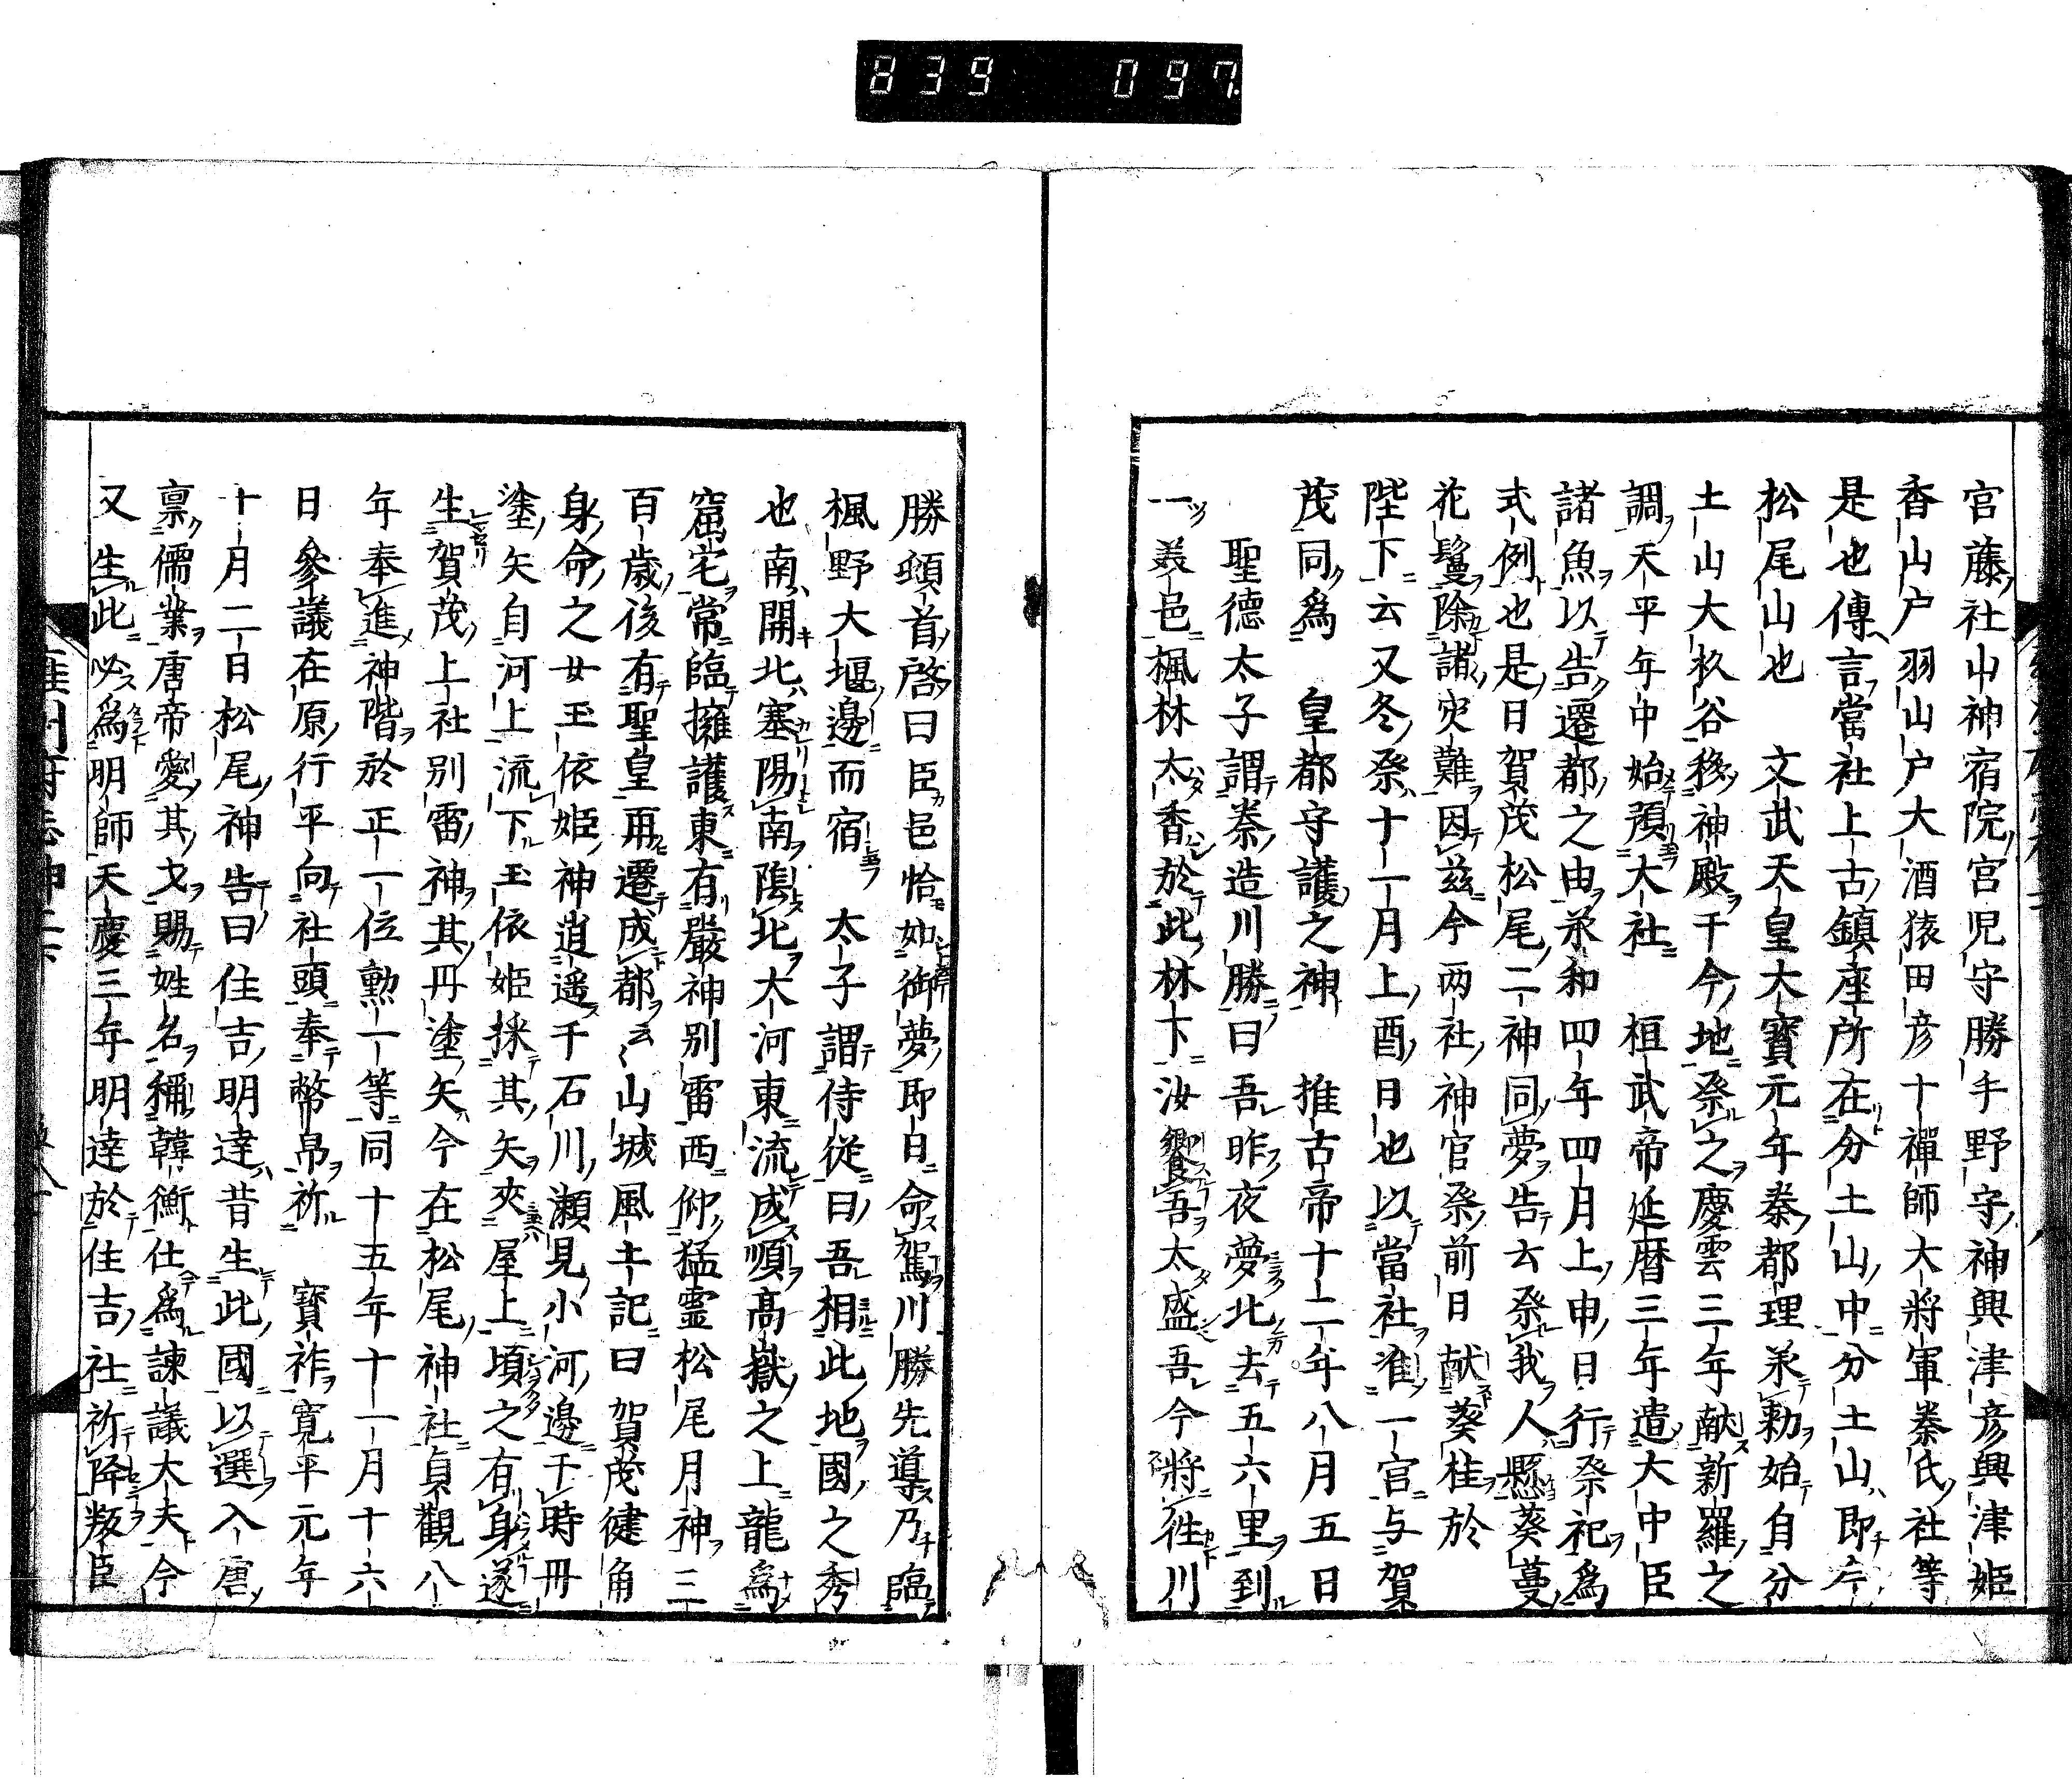 839 097
宮藤社中神宿院宮児守勝手野守神興津彦興津姫
香山戸羽山戸大酒猿田彦十禪師大将軍秦氏社等
是也傳言當社上古鎮座所在分土山中分土山即今
松尾山也 文武天皇大寶元年秦都理承勅始自分
土山大杦谷移神殿于今地祭之慶雲三年献新羅之
調天平年中始預大社 桓武帝延暦三年遣大中臣
諸魚以告遷都之由承和四年四月上申日行祭祀爲
式例也是日賀茂松尾二神同夢告云祭我人懸葵蔓
花鬘除諸灾難因茲今两社神官祭前日献葵桂於
陛下云又冬祭十一月上酉日也以當社准一宮与賀
茂同爲 皇都守護之神 推古帝十二年八月五日
聖德太子謂秦造川勝曰吾昨夜夢北去五六里到
一美邑楓林太香於此林下汝饗吾太盛吾今将徃川
勝頓首啓曰臣邑恰如御夢即日命駕川勝先導乃臨
楓野大堰邊而宿 太子謂侍従曰吾相此地國之秀
也南開北塞陽南陰北大河東流成順髙嶽之上龍爲
窟宅常臨擁護東有嚴神别雷西仰猛霊松尾月神三
百歳後有聖皇再遷成都云々山城風土記曰賀茂健角
身命之女玉依姫神逍遥于石川瀬見小河邊于時丹
塗矢自河上流下玉依姫採其矢夾屋上頃之有身遂
生賀茂上社别雷神其丹塗矢今在松尾神社貞觀八
年奉進神階於正一位勳一等同十五年十一月十六
日參議在原行平向社頭奉幣帛祈 寶祚寛平元年
十月二日松尾神告曰住吉明達昔生此國以選入唐
禀儒業唐帝愛其才賜姓名稱韓衡仕爲諌議大夫今
又生此必爲明師天慶三年明達於住吉社祈降叛臣